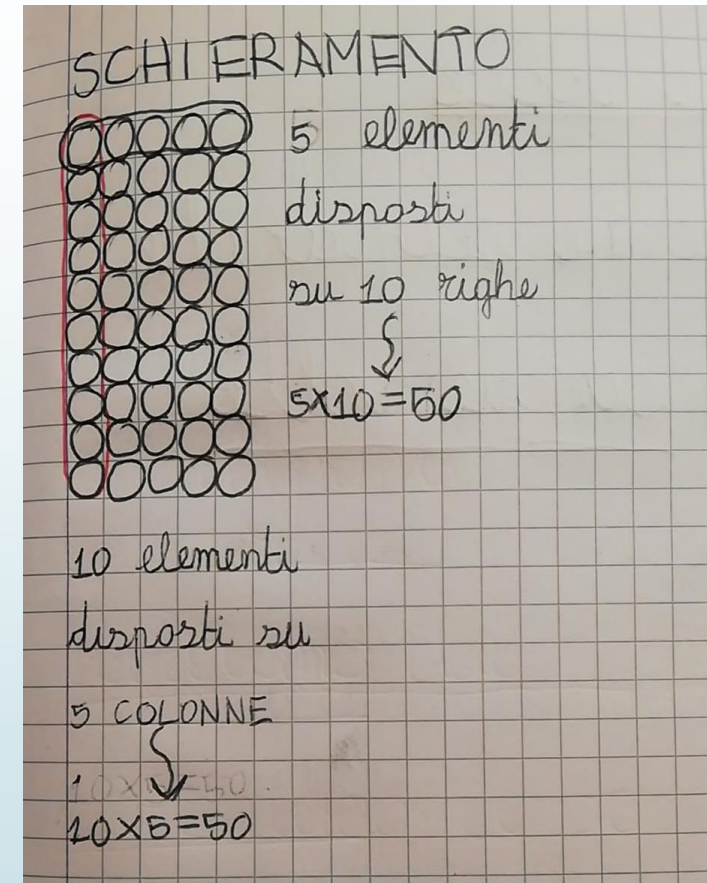 SCHIERAMENTO
5 elementi
disposti
su 10 righe
5x10=50
10 elementi
disposti su
5 COLONNE
10x5=50
10x5=50